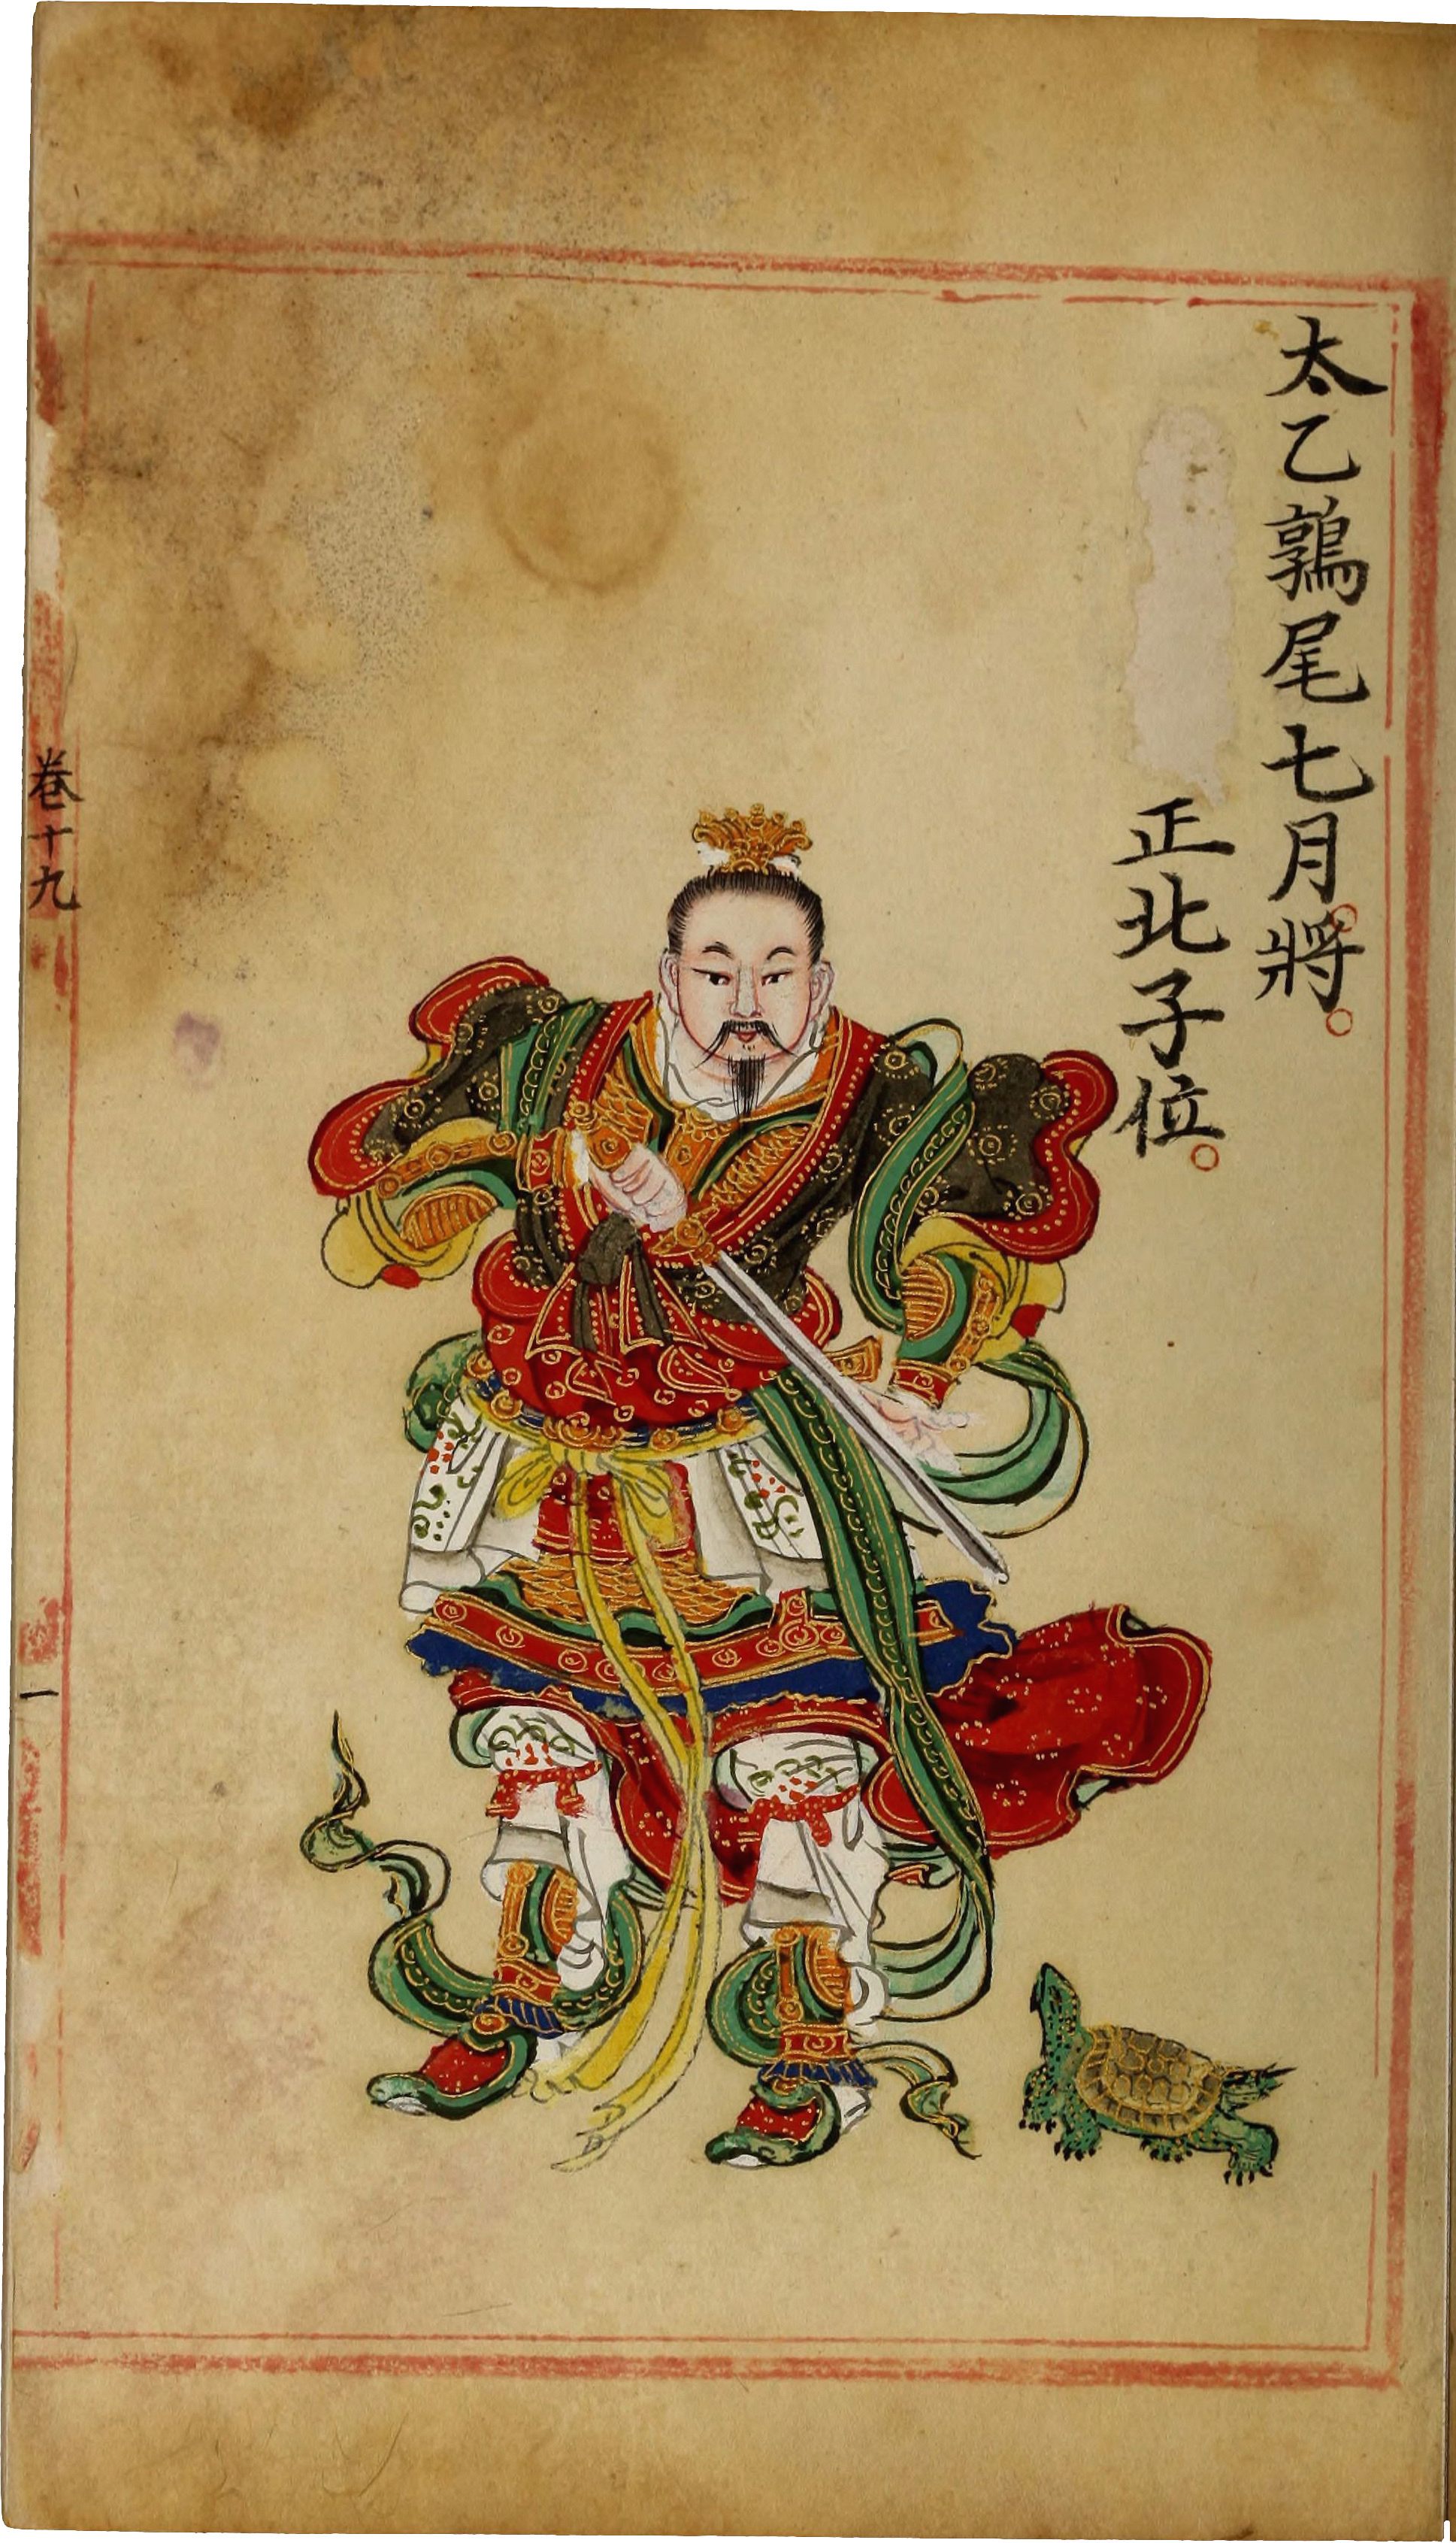 太乙鶉尾七月將。
正北子位。
卷十九
一